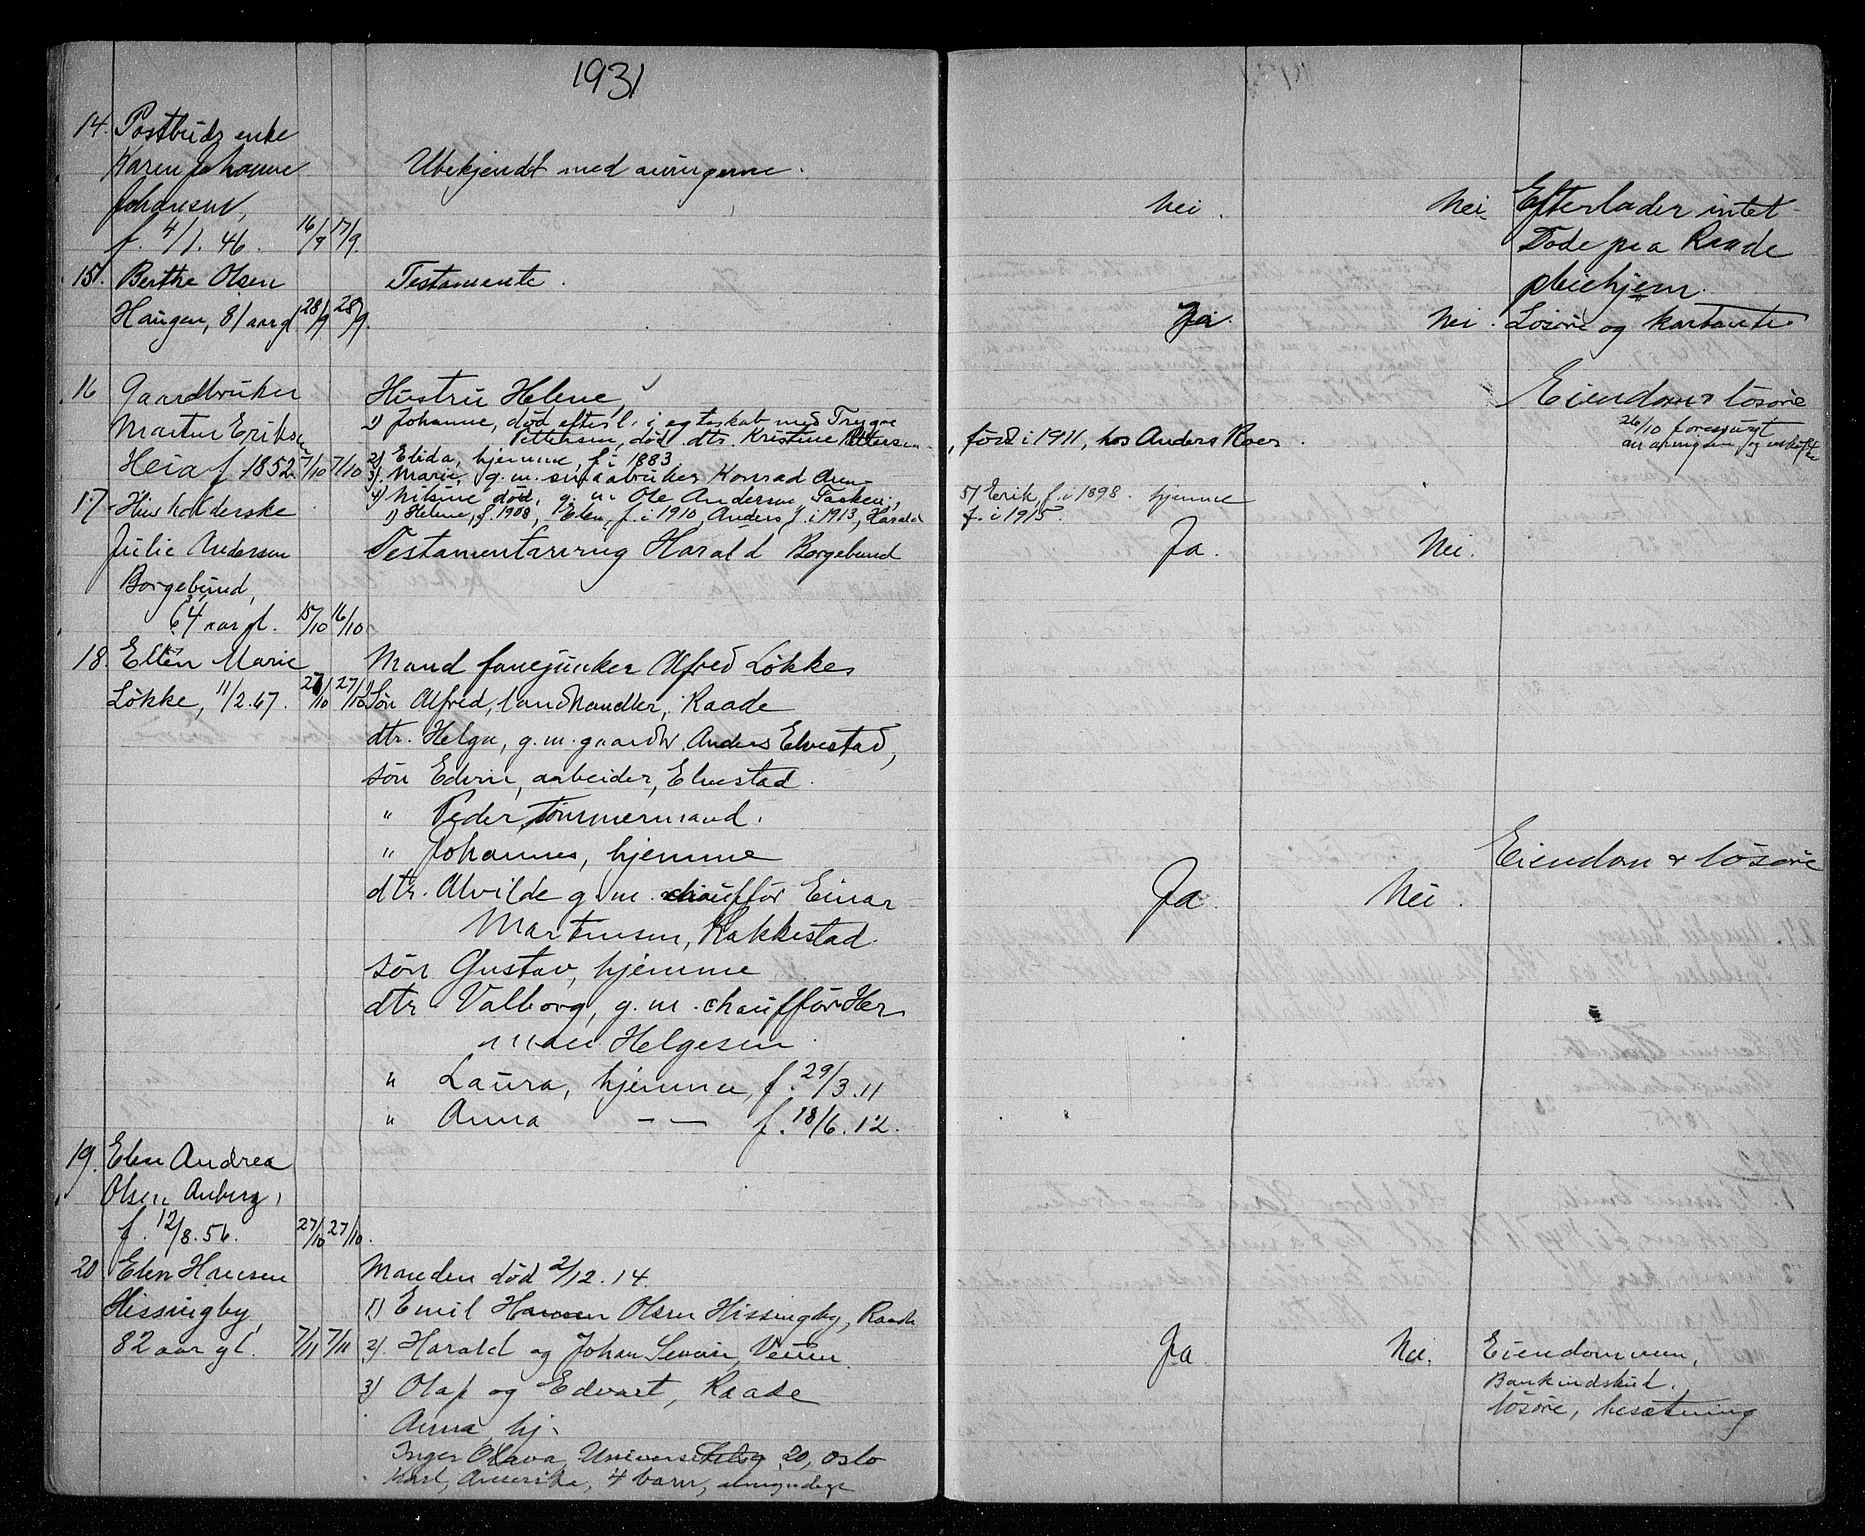 1931
14. Postbuds enke
Karen Johanne
Johansen,
f. 4/1. 46. 16/9 17/9.
Ubekjendt med arvingerne.
Nei. Nei. Efterlader intet
Døde paa Raade
pleiehjem.
15. Berthe Olsen
Haugen, 81 aar gl 28/9 28/9.
Testamente.
Ja. Nei. Løsøre og kontanter
16 Gaardbruker
Martin Eriksen
Heia f. 1852 7/10 7/10
Hustru Helene,
1) Johanne, død efterl. i egteskab med Trygve
Pettersen, død dtr. Kristine Pettersen, født i 1911, hos Anders Roer
2) Elida, hjemme, f. i 1883
3) Marie, g. m. smaabruker Konrad
4) Nilsine død, g. m. Ole Andersen,
1) Helene, f. 1908, Elen, f. i 1910, Anders f. i 1913, Harald
f. i 1915.
5) Erik, f. i 1898. hjemme
Eiendom & løsøre
26/10 forespurgt
17. Husholderske
Julie Andersen
Borgebund,
64 aar gl. 15/10 16/10
Testamentarving Harald Borgebund
Ja. Nei.
18. Ellen Marie
Løkke, 11/2. 67. 27/10 27/10
Mand fanejunker Alfred Løkke
Søn Alfred, landhandler, Raade
dtr. Helga, g. m. gaardbr. Anders Elvestad,
søn Edvin, arbeider, Elvestad.
" Peder, tømmermand.
" Johannes, hjemme
dtr. Alvilde g. m. chauffør Einar
Martinsen, Rakkestad.
søn Gustav, hjemme
dtr Valborg, g. m. chauffør Her
man Helgesen.
" Laura, hjemme, f. 29/3. 11
" Anna — — f. 18/6. 12.
Ja. Nei.
Eiendom & løsøre
19. Elen Andrea
Olsen Auberg,
f. 12/8. 56. 27/10 27/10.
20 Elen Hansen
Hissingby,
82 aar gl. 7/11 7/11
Manden død 2/12. 14.
1) Emil Hansen Olsen Hissingby, Raade
2) Harald og Johan
3) Olaf og Edvart, Raade
Anna, hj.
Inger Olava, 20, Oslo
Karl, Amerika, 4 barn,
Ja. Nei. Eiendommen,
Bankindskud.
løsøre, besætning